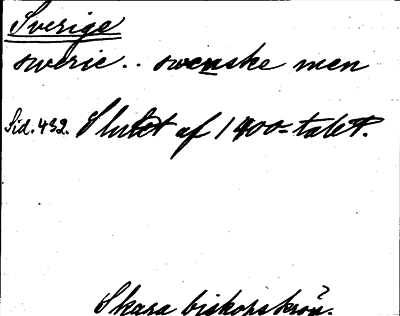 Sverige
swerie.. swenske men
Sid. 432. Slutet af 1400=talet.
Skara biskopskrön.